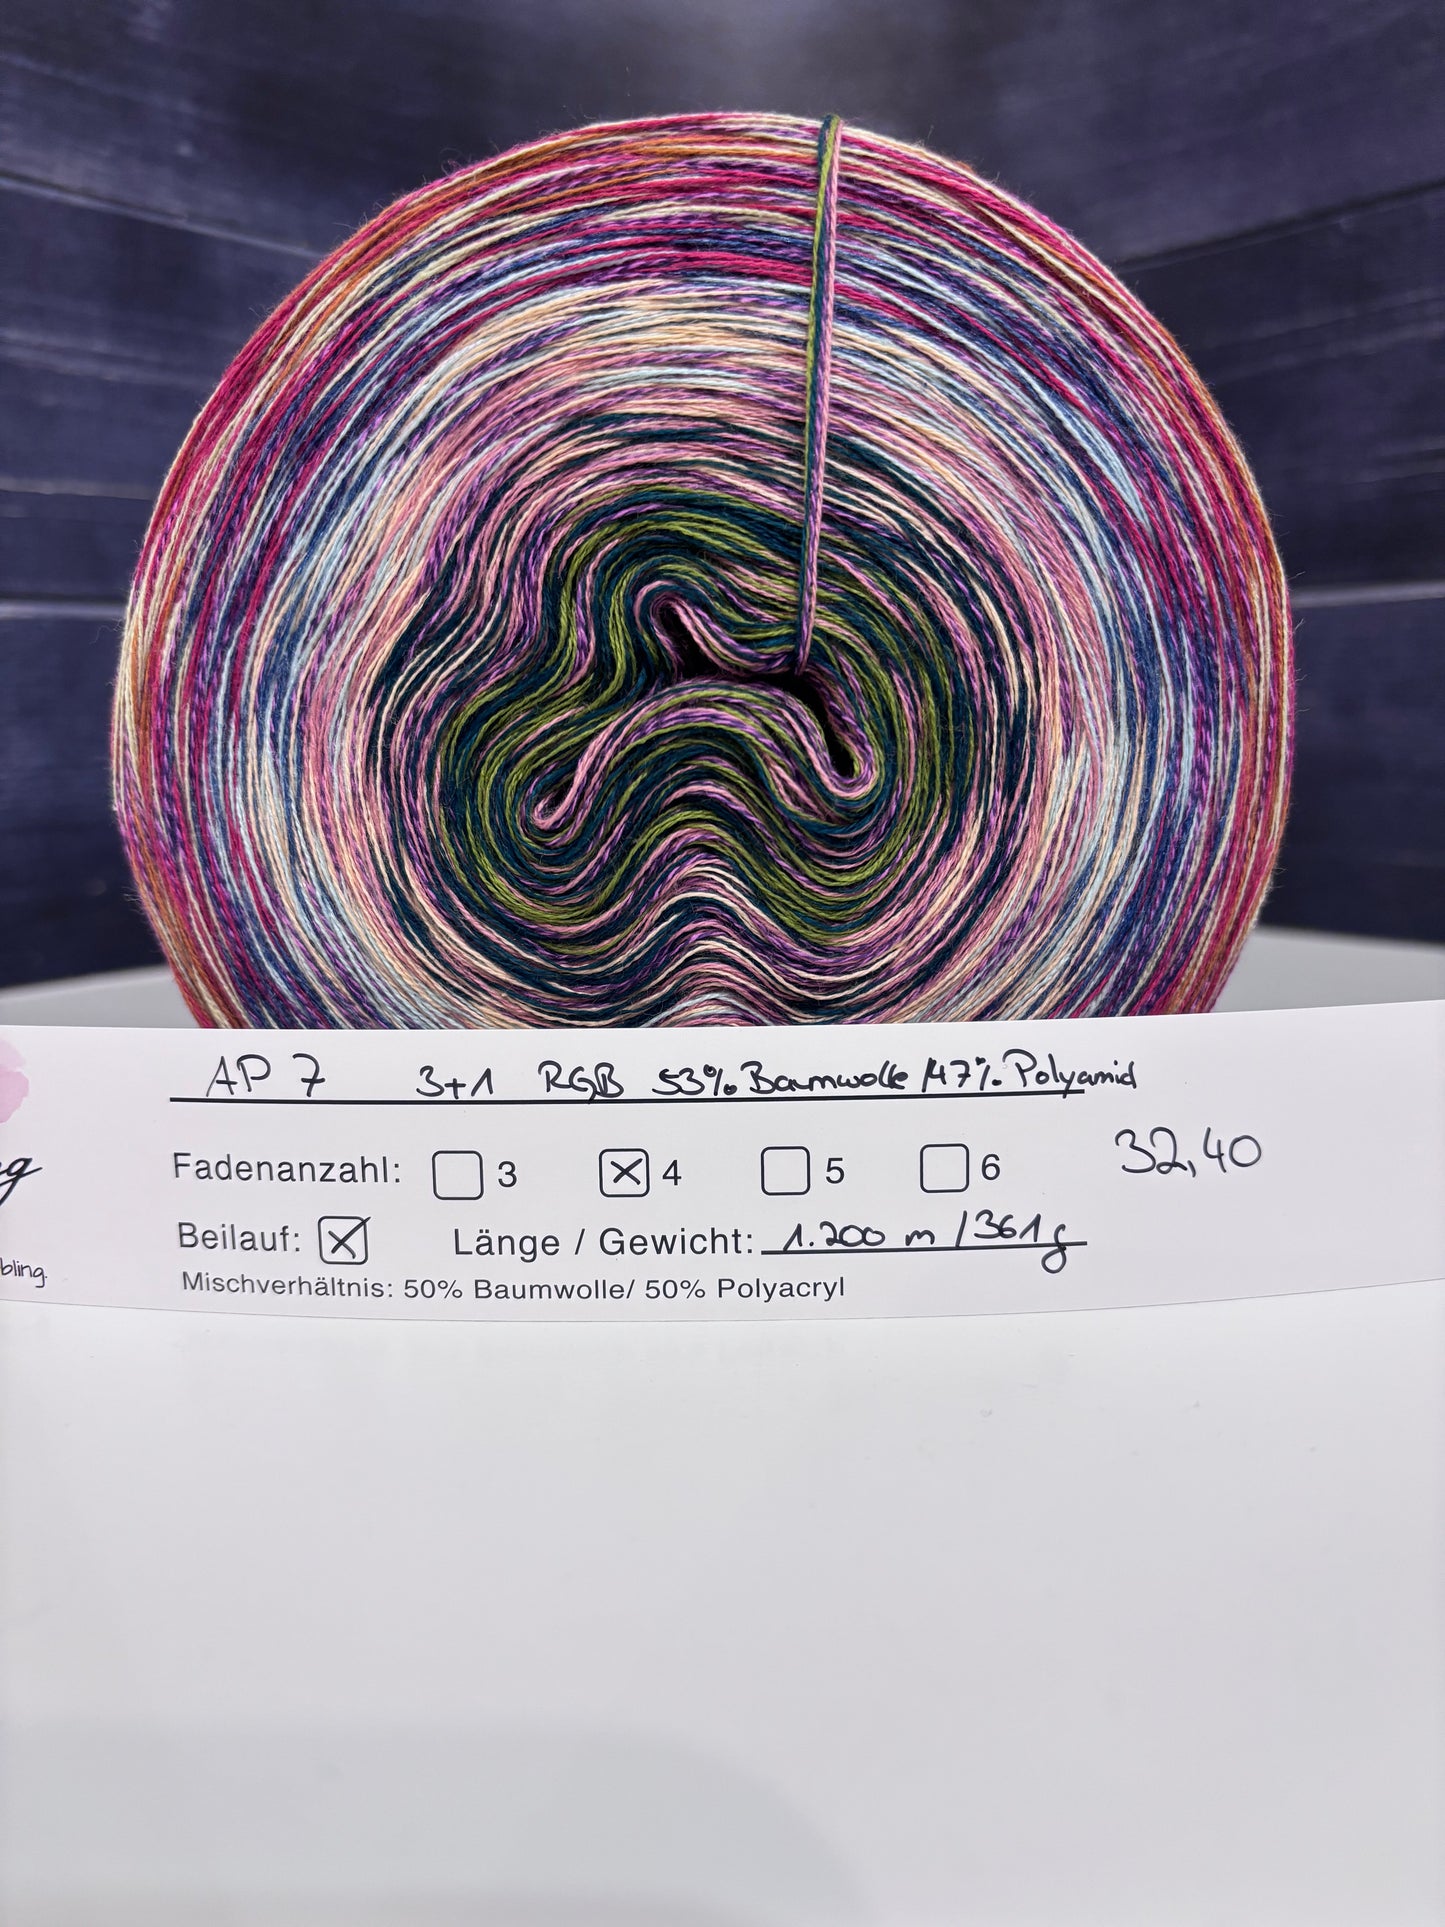 AP 7 3+1 RGB 53% Baumwolle /47% Polyamid
Fadenanzahl: 3 4 5 6 32,40
Beilauf: Länge / Gewicht: 1.200 m /361g
bling.
Mischverhältnis: 50% Baumwolle/ 50% Polyacryl